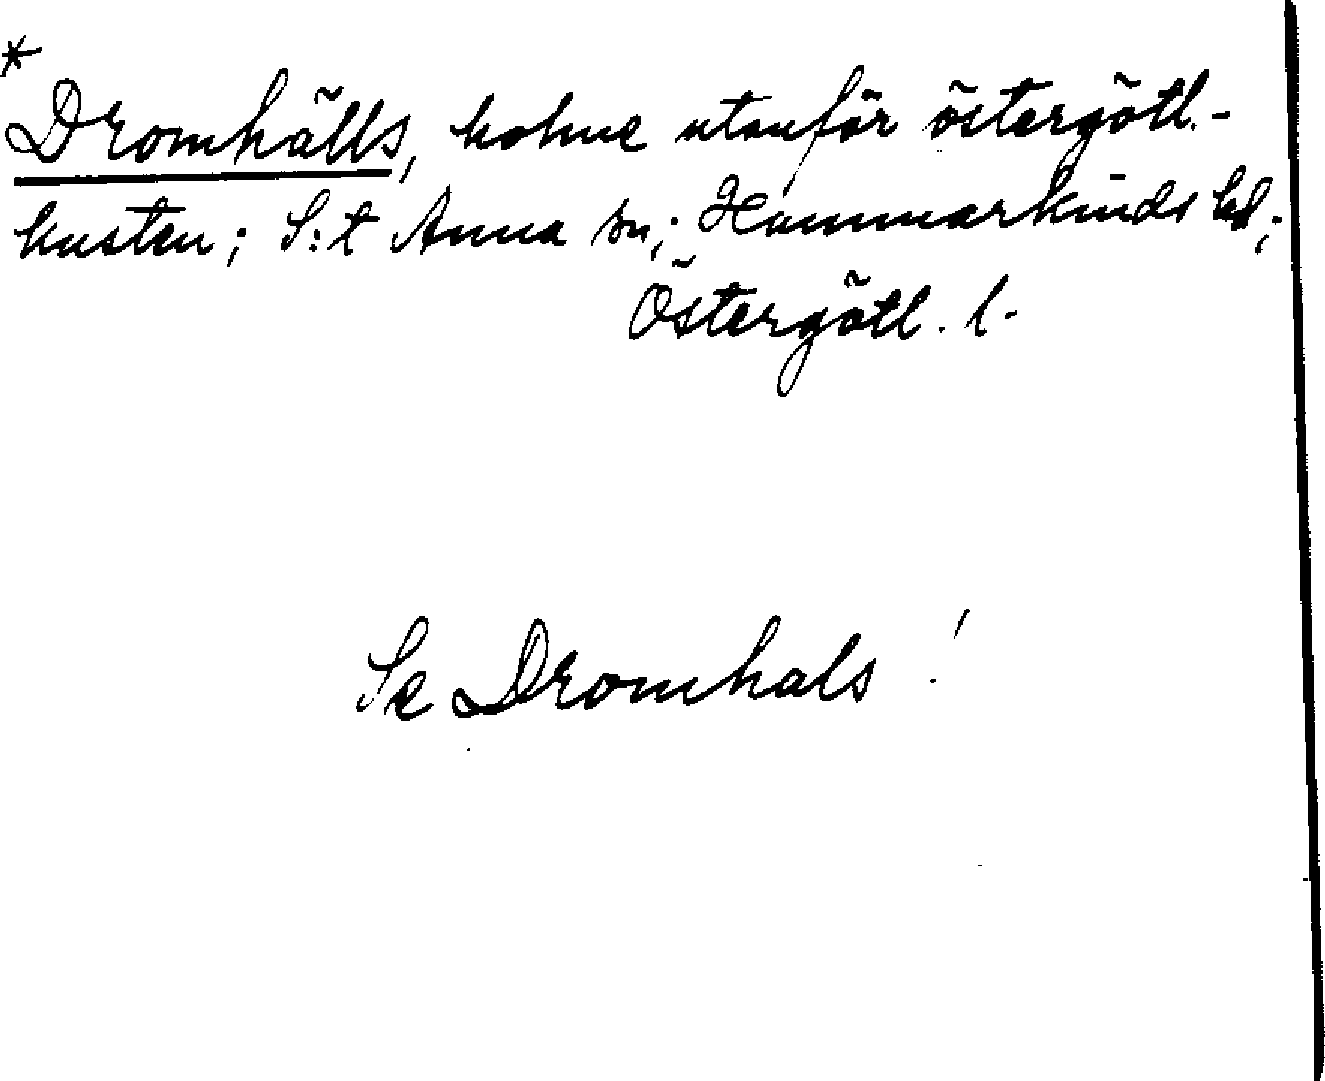 *
Dromhälls, holme utanför östergötl.-
kusten; S:t Anna sn; Hammarkinds hd;
Östergötl. l.
Se Dromhals!